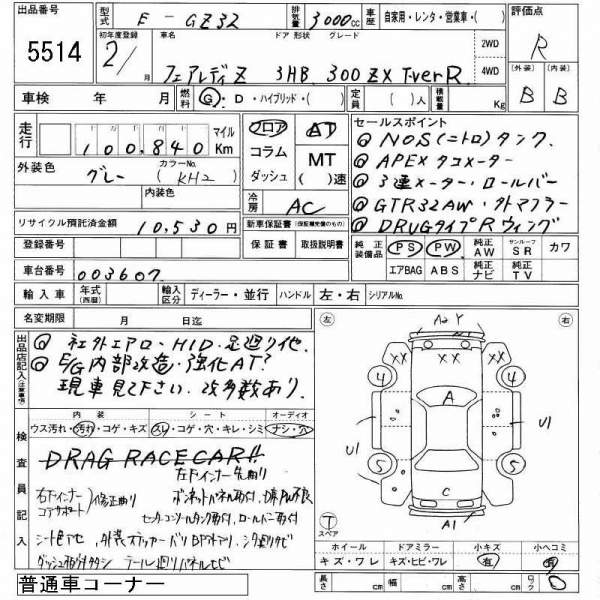 出品番号 5514
型式 E-GZ32 排気量 3000cc 車歴 自家用・レンタ・営業車・( ) 評価点 R
初年度登録 2/ 月 車名 ドア 形状 グレード 2WD 4WD
フェアレディZ 3HB 300ZX T-verR
(外装) B (内装) B
車検 年 月 燃料 G・D・ハイブリッド・( ) 定員 ( )人 積載量 Kg
走行 100,840 マイル Km フロア コラム ダッシュ AT MT ( )速
外装色 グレー カラーNo. (KH2) 内装色 冷房 AC
セールスポイント
◎NOS(ニトロ)タンク.
◎APEXタコメーター
◎3連メーター・ロールバー
◎GTR32AW・外マフラー
◎DRUGタイプRウィング
リサイクル預託済金額 10,530円 新車保証書(保証継続済のもの)
登録番号 保証書 取扱説明書
純正装備品 PS PW 純正AW サンルーフSR カワ
エアBAG ABS 純正ナビ 純正TV
車台番号 003607
輸入車 年式(西暦) 輸入区分 ディーラー・並行 ハンドル 左・右 シリアルNo.
名変期限 月 日迄
出品店記入(注意事項)
◎社外エアロ・HID・足廻り他
◎E/G内部改造・強化AT?
現車見て下さい. 改多数あり.
検査員記入
内装 シート オーディオ
ウス汚れ・汚れ・コゲ・キズ スレ・コゲ・穴・キレ・シミ ナシ・穴
DRAG RACE CAR!!
右Fインナー コアサポート 修正曲り
左Fインナー先曲り
ロールバー取付
シート色ヤセ
左 右
A2 Y
XX XX
4 4
A
U1 U1
5 5
C
A1
T スペア
ホイール ドアミラー 小キズ 小ヘコミ
キズ・ワレ キズ・ヒビ・ワレ 有 有
長さ cm 幅 cm 高さ cm
普通車コーナー